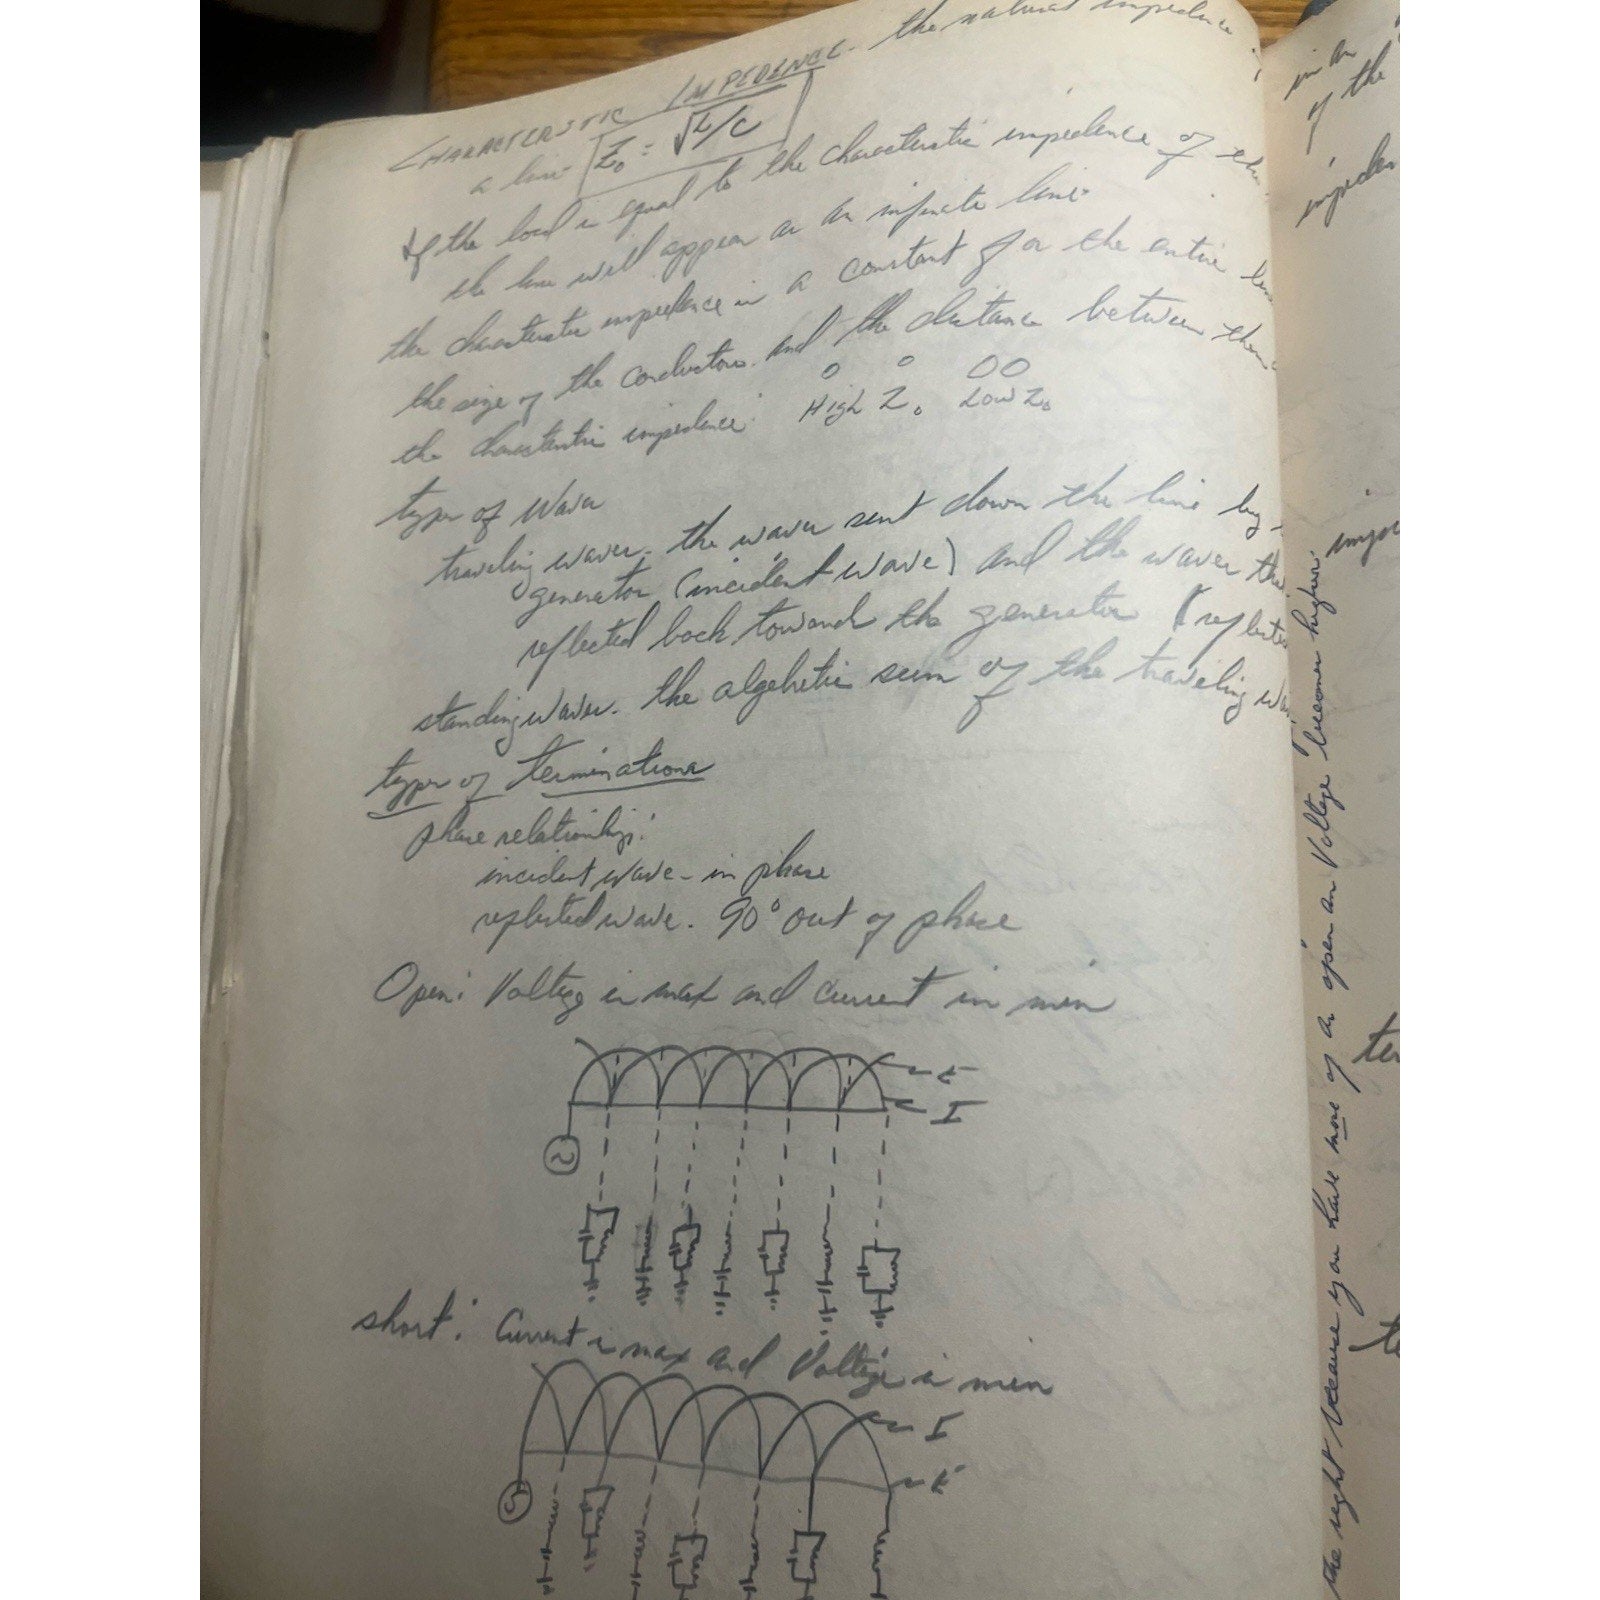 CHARACTERISTIC IMPEDENCE - the natural impedence
a line Z₀ = √L/C
If the load is equal to the characteristic impedence of the
the line will appear as an infinite line.
the characteristic impedence is a constant for the entire line
the size of the conductors and the distance between them
the characteristic impedence:
High Z₀ Low Z₀
types of Waves
traveling waves - the waves sent down the line by
generator (incident wave) and the waves that
reflected back toward the generator (reflected
standing waves - the algebetic sum of the traveling wa
types of terminations
phase relationship:
incident wave - in phase
reflected wave - 90° out of phase
Open: Voltage is max and current is min
E
I
short: Current is max and Voltage is min
I
E
in an
of the
impeden
impe
te
te
the right because you have more of an open an Voltage becomes higher.